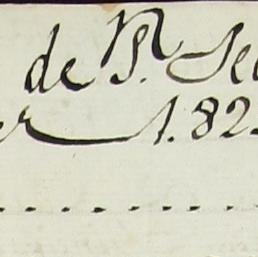 de Sn. Se
er 1.82